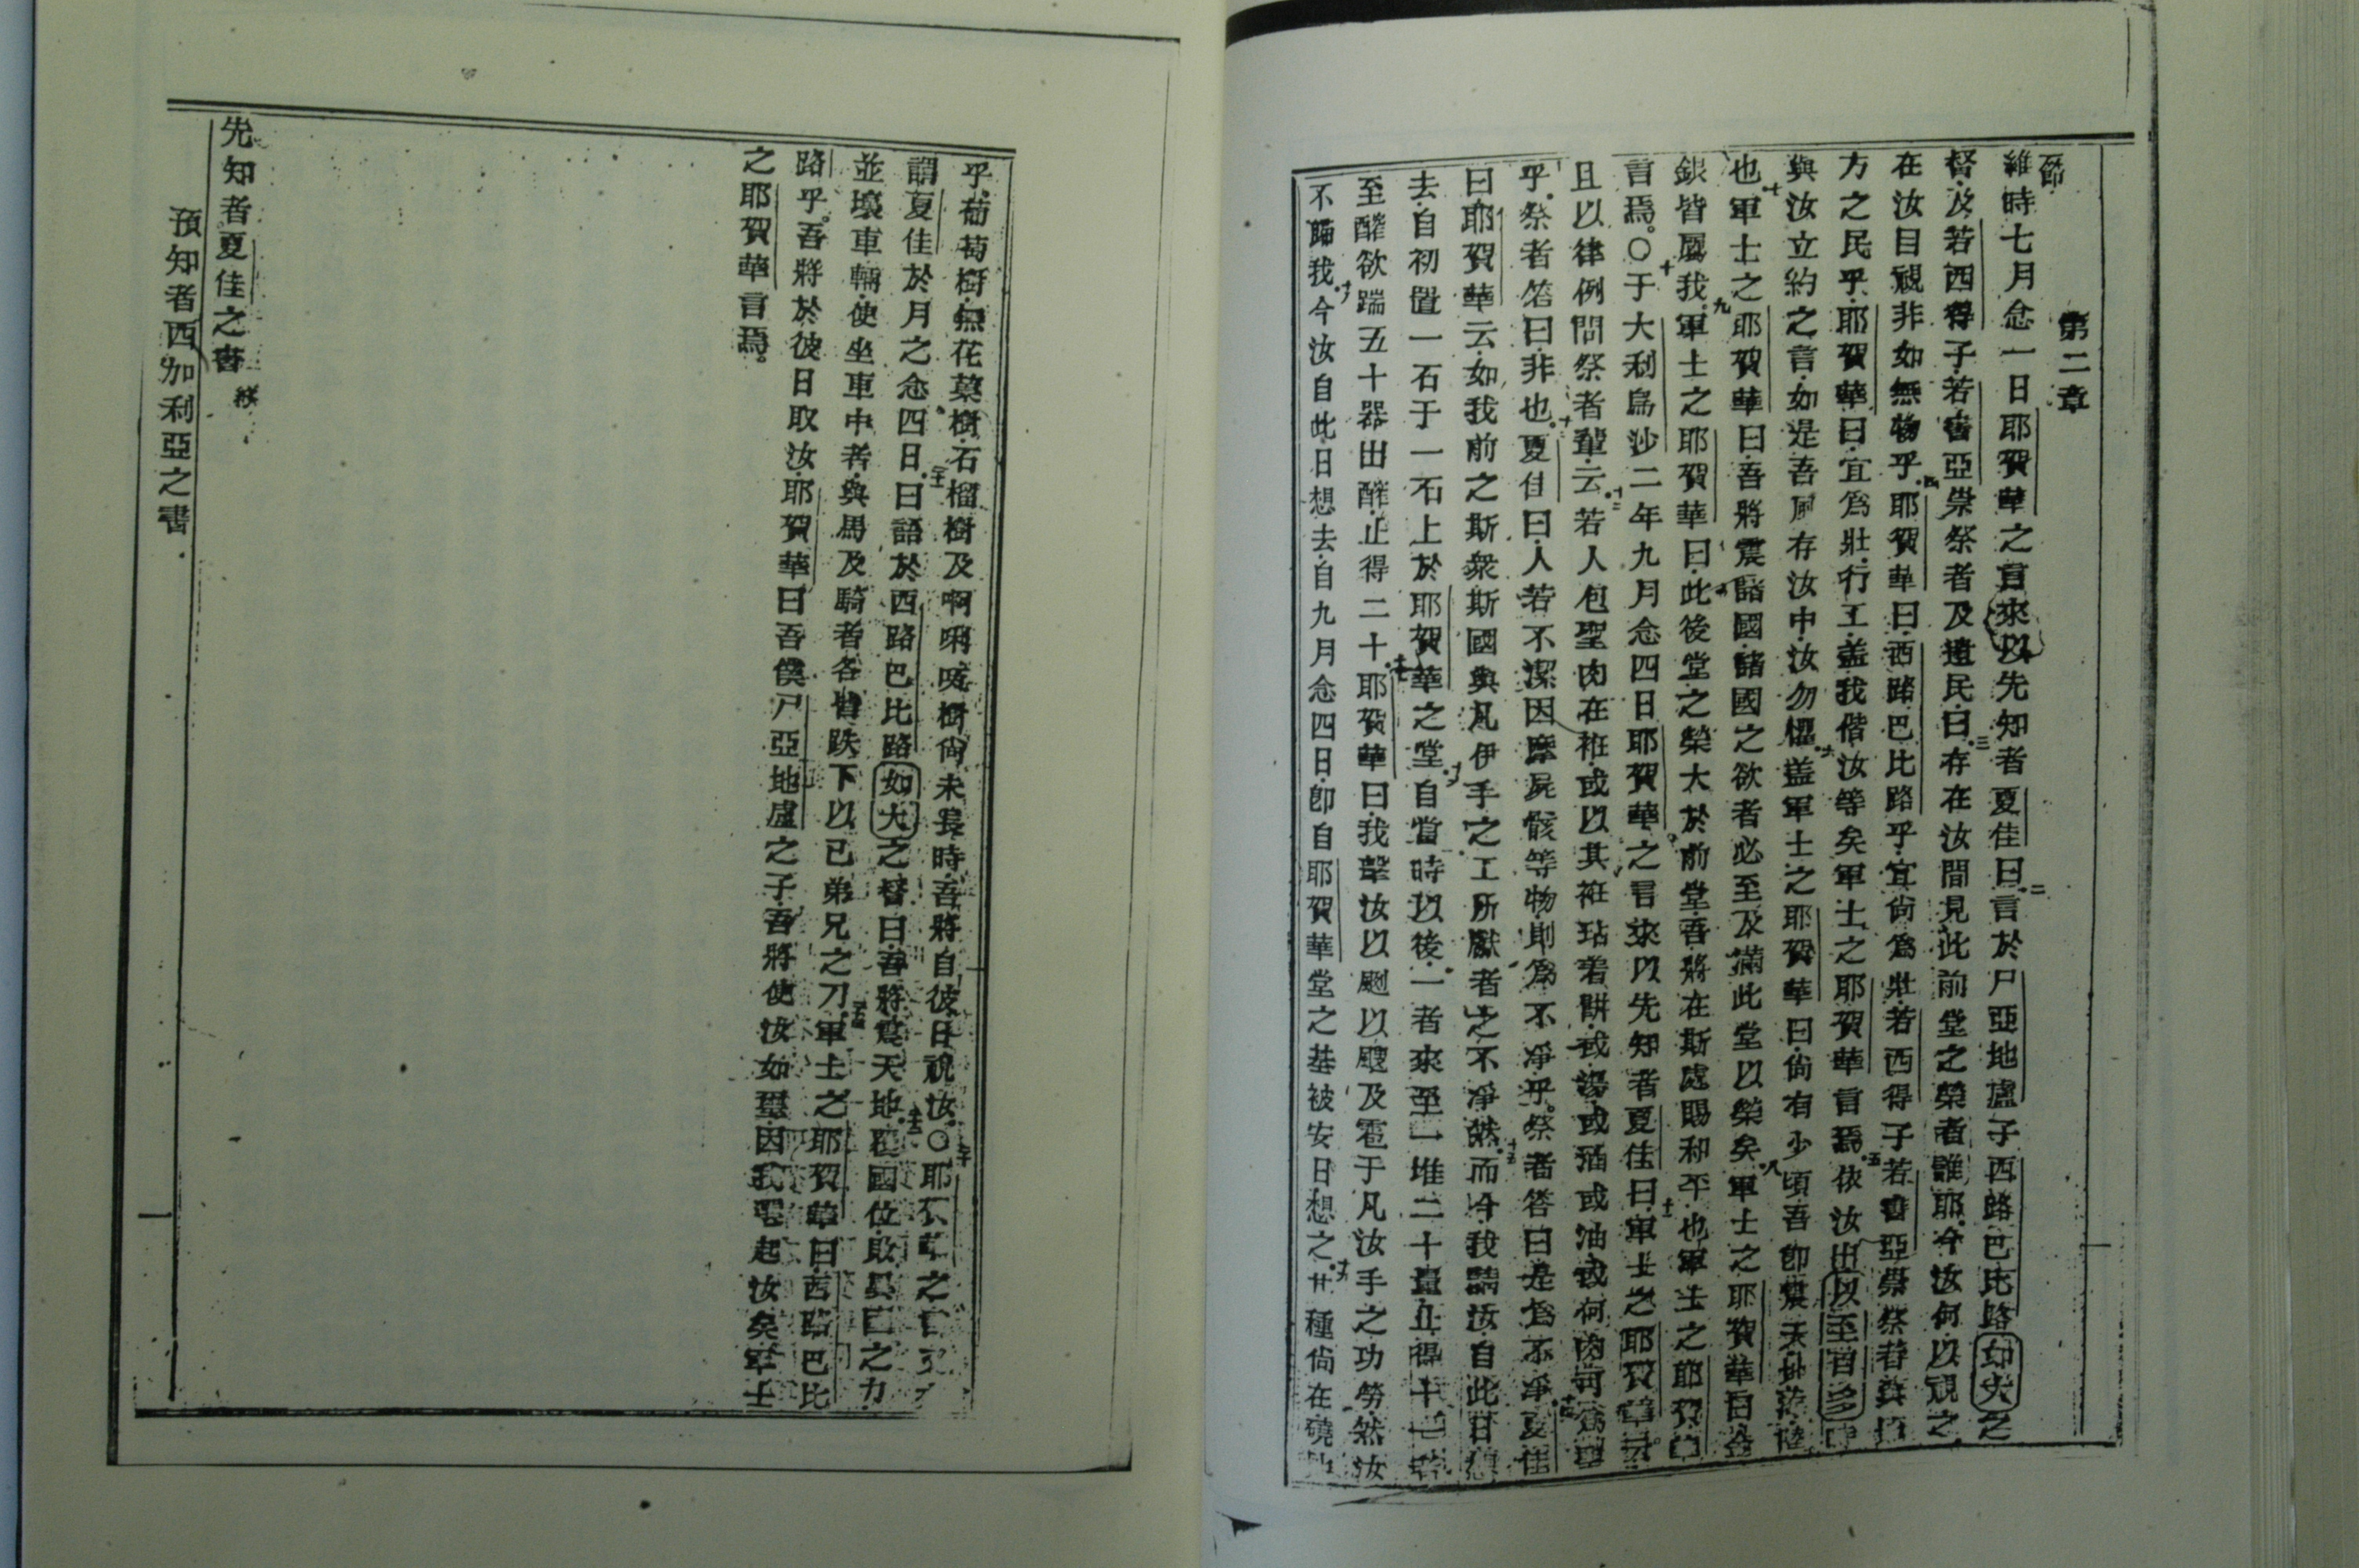 第二章
節
維時七月念一日耶賀華之言來以先知者夏佳曰言於尸亞地盧子西路巴比路如大之
督及若西得子若書亞崇祭者及遺民曰存在汝間見此前堂之榮者誰耶今汝何以視之
在汝目視非如無物乎耶賀華曰西路巴比路乎宜尙爲壯若西得子若書亞崇祭者與
方之民乎耶賀華曰宜爲壯行工盖我偕汝等矣軍士之耶賀華言焉依汝出以至百多
與汝立約之言如是吾風存汝中汝勿懼盖軍士之耶賀華曰尙有少頃吾卽震天
也軍士之耶賀華曰吾將震諸國諸國之欲者必至及滿此堂以榮矣軍士之耶賀華曰金
銀皆屬我軍士之耶賀華曰此後堂之榮大於前堂吾將在斯處賜和平也軍士之耶賀華
言焉〇于大利烏沙二年九月念四日耶賀華之言來以先知者夏佳曰軍士之耶賀華云
且以律例問祭者輩云若人包聖肉在袵或以其袵玷着餅或湯或酒或油或何肉可爲聖
乎祭者答曰非也夏佳曰人若不潔因摩屍骸等物則爲不凈乎祭者答曰是爲不凈夏佳
曰耶賀華云如我前之斯衆斯國與凡伊手之工所獻者之不凈然而今我請汝自此日想
去自初置一石于一石上於耶賀華之堂自當時以後一者來至一堆二十量止得十
至醡欲踹五十器出醡止得二十耶賀華曰我擊汝以颲以颶及雹于凡汝手之功勞然汝
不歸我今汝自此日想去自九月念四日卽自耶賀華堂之基被安日想之廿種尙在
乎葡萄樹無花菓樹石榴樹及啊唎㖠樹尙未長時吾將自彼日祝汝〇耶賀華之
謂夏佳於月之念四日曰語於西路巴比路如大之督曰吾將震天地壓國位敗異國之力
並壞車輛使坐車中者與馬及騎者各皆跌下以己弟兄之刀軍士之耶賀華曰西路巴比
路乎吾將於彼日取汝耶賀華曰吾僕尸亞地盧之子吾將使汝如璽因我揀起汝矣軍士
之耶賀華言焉
先知者夏佳之書 終
預知者西加利亞之書
一